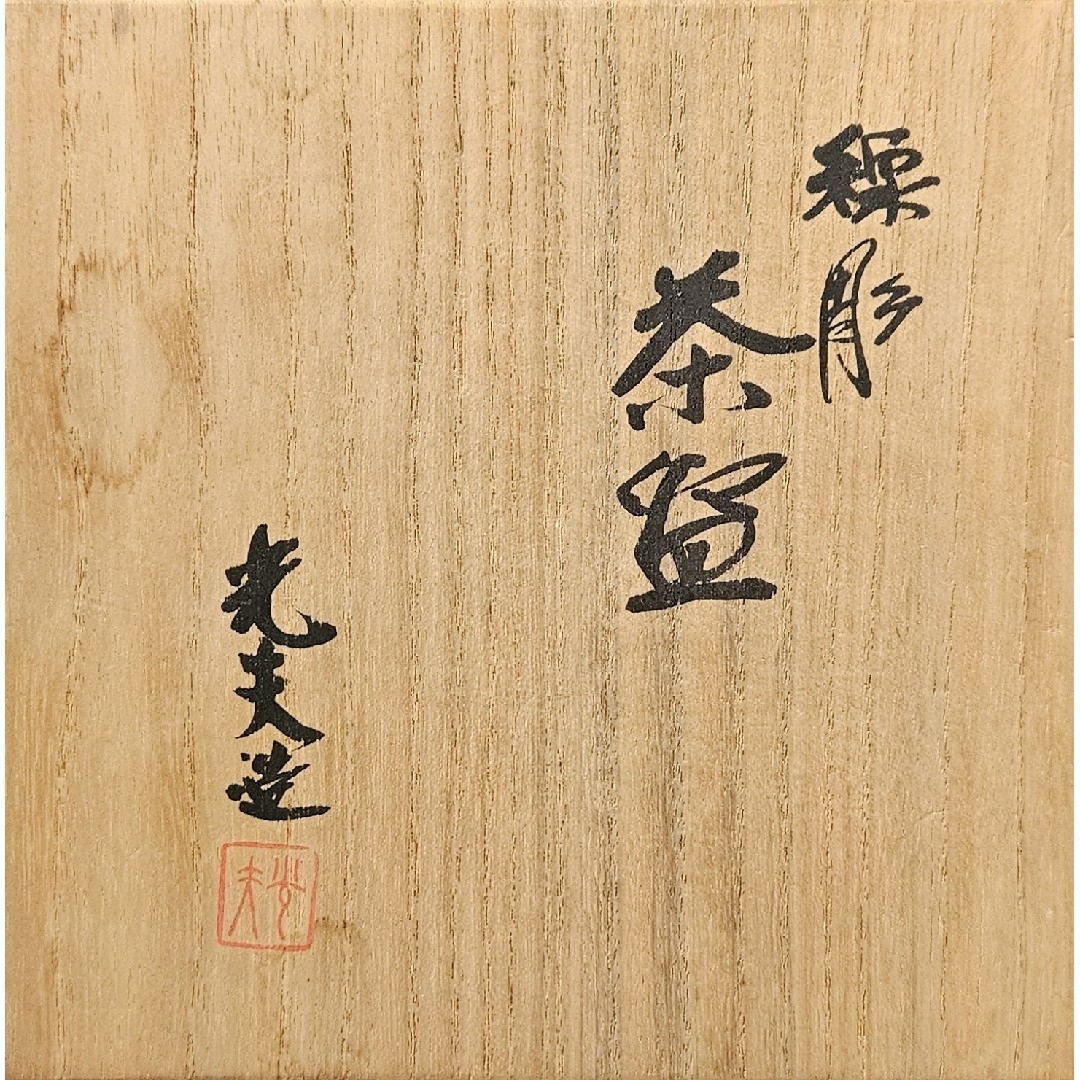 線彫
茶盌
光夫造
光夫